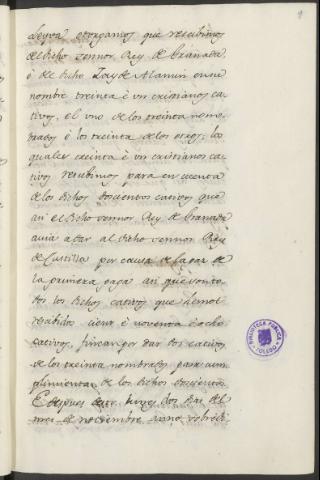 Leyva otorgamos que recibimos
del dicho sennor Rey de Granada
è del dicho Zayde Alamin en su
nombre treinta è un cristianos ca
tivos, el uno de los treinta nom
brados è los treinta de los otros; los
quales treinta è un cristianos ca
tivos recibimos para en cuenta
de los dichos doscientos cativos que
asi el dicho sennor Rey de Granada
avia a dar al dicho sennor Rey
de Castilla por causa de la paz de
la primera paga asi que son to
dos los dichos cativos que hemos
recibidos cient è noventa è ocho
cativos, fincan por dar dos cativos
de los treinta nombrados para cum
plimiento de los dichos doscientos.
E despues desto lunes dos dias del
mes de noviembre anno sobredi
BIBLIOTECA PÚBLICA
TOLEDO